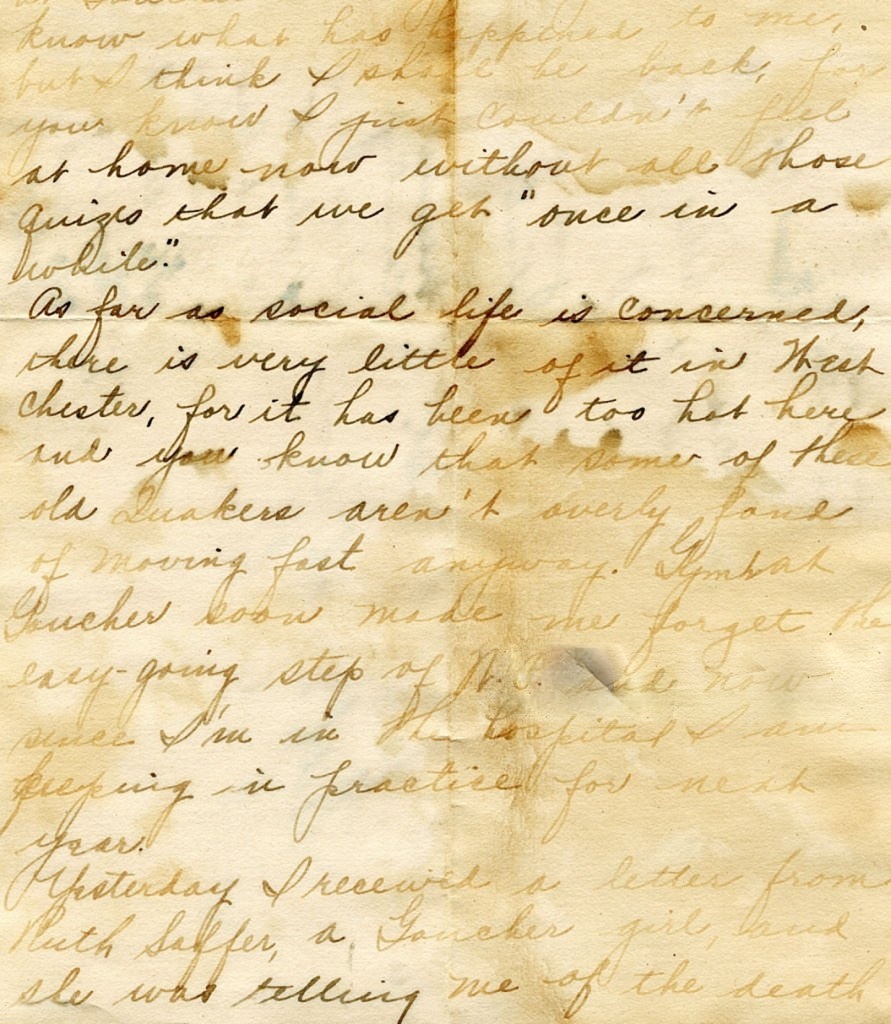 know what has happened to me,
but I think I shall be back, for
you know I just couldn't feel
at home now without all those
quizes that we get "once in a
while".
As far as social life is concerned,
there is very little of it in West
Chester, for it has been too hot here
and you know that some of these
old Quakers aren't overly fond
of moving fast anyway. at
Goucher soon made me forget the
easy-going step of W.C. and now
since I'm in the hospital I am
keeping in practice for next
year.
Yesterday I received a letter from
Ruth Saffer, a Goucher girl, and
she was telling me of the death